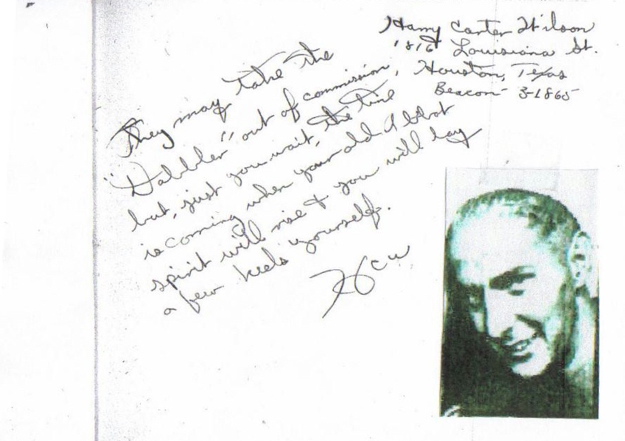 Harry Carter Wilson
1816 Louisiana St.
Houston, Texas
Beacon 3-1865
They may take the
"Dabbler" out of commission,
but, just you wait, the time
is coming when your old
spirit will rise & you will lay
a few keels yourself.
HCW